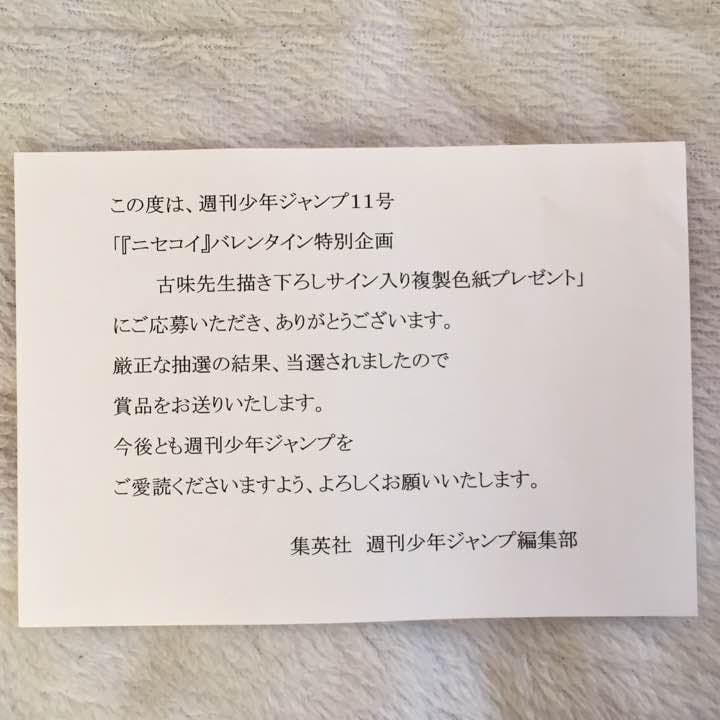 この度は、週刊少年ジャンプ11号
「『ニセコイ』バレンタイン特別企画
古味先生描き下ろしサイン入り複製色紙プレゼント」
にご応募いただき、ありがとうございます。
厳正な抽選の結果、当選されましたので
賞品をお送りいたします。
今後とも週刊少年ジャンプを
ご愛読くださいますよう、よろしくお願いいたします。
集英社　週刊少年ジャンプ編集部